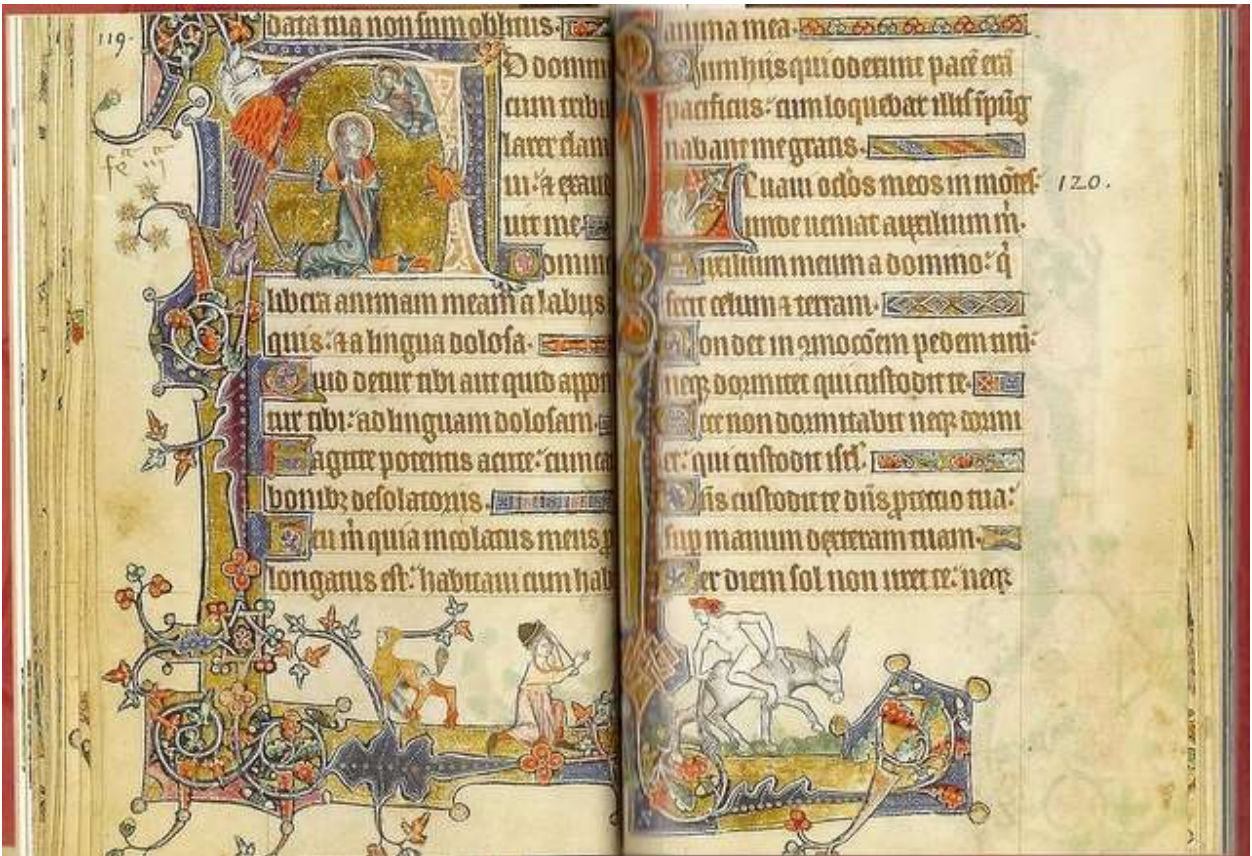 119.
data tua non sum oblitus.
AD domin
cum tribu
larer clam
ui: ⁊ exaud
uit me.
Domine
libera animam meam a labiis
quis: ⁊ a lingua dolosa.
Quid detur tibi aut quid appon
tur tibi: ad linguam dolosam.
Sagitte potentis acute: cum ca
bonibꝫ desolatoriis.
Heu m̄ quia incolatus meus p
longatus est: habitaui cum hab
anima mea.
Cum hiis qui oderunt pacē erā
pacificus: cum loquebar illis īpug
nabant me gratis.
Leuaui oclos meos in mōtes: 120.
unde ueniat auxilium m̄.
Auxilium meum a domino: q̄
fecit celum ⁊ terram.
Non det in ꝯmocōem pedem tuū:
neqꝫ dormitet qui custodit te.
Ecce non dormitabit neqꝫ dormi
et: qui custodit isrl̄.
Dn̄s custodit te dn̄s ꝓteccio tua:
sup manum dexteram tuam.
Per diem sol non uret te: neqꝫ